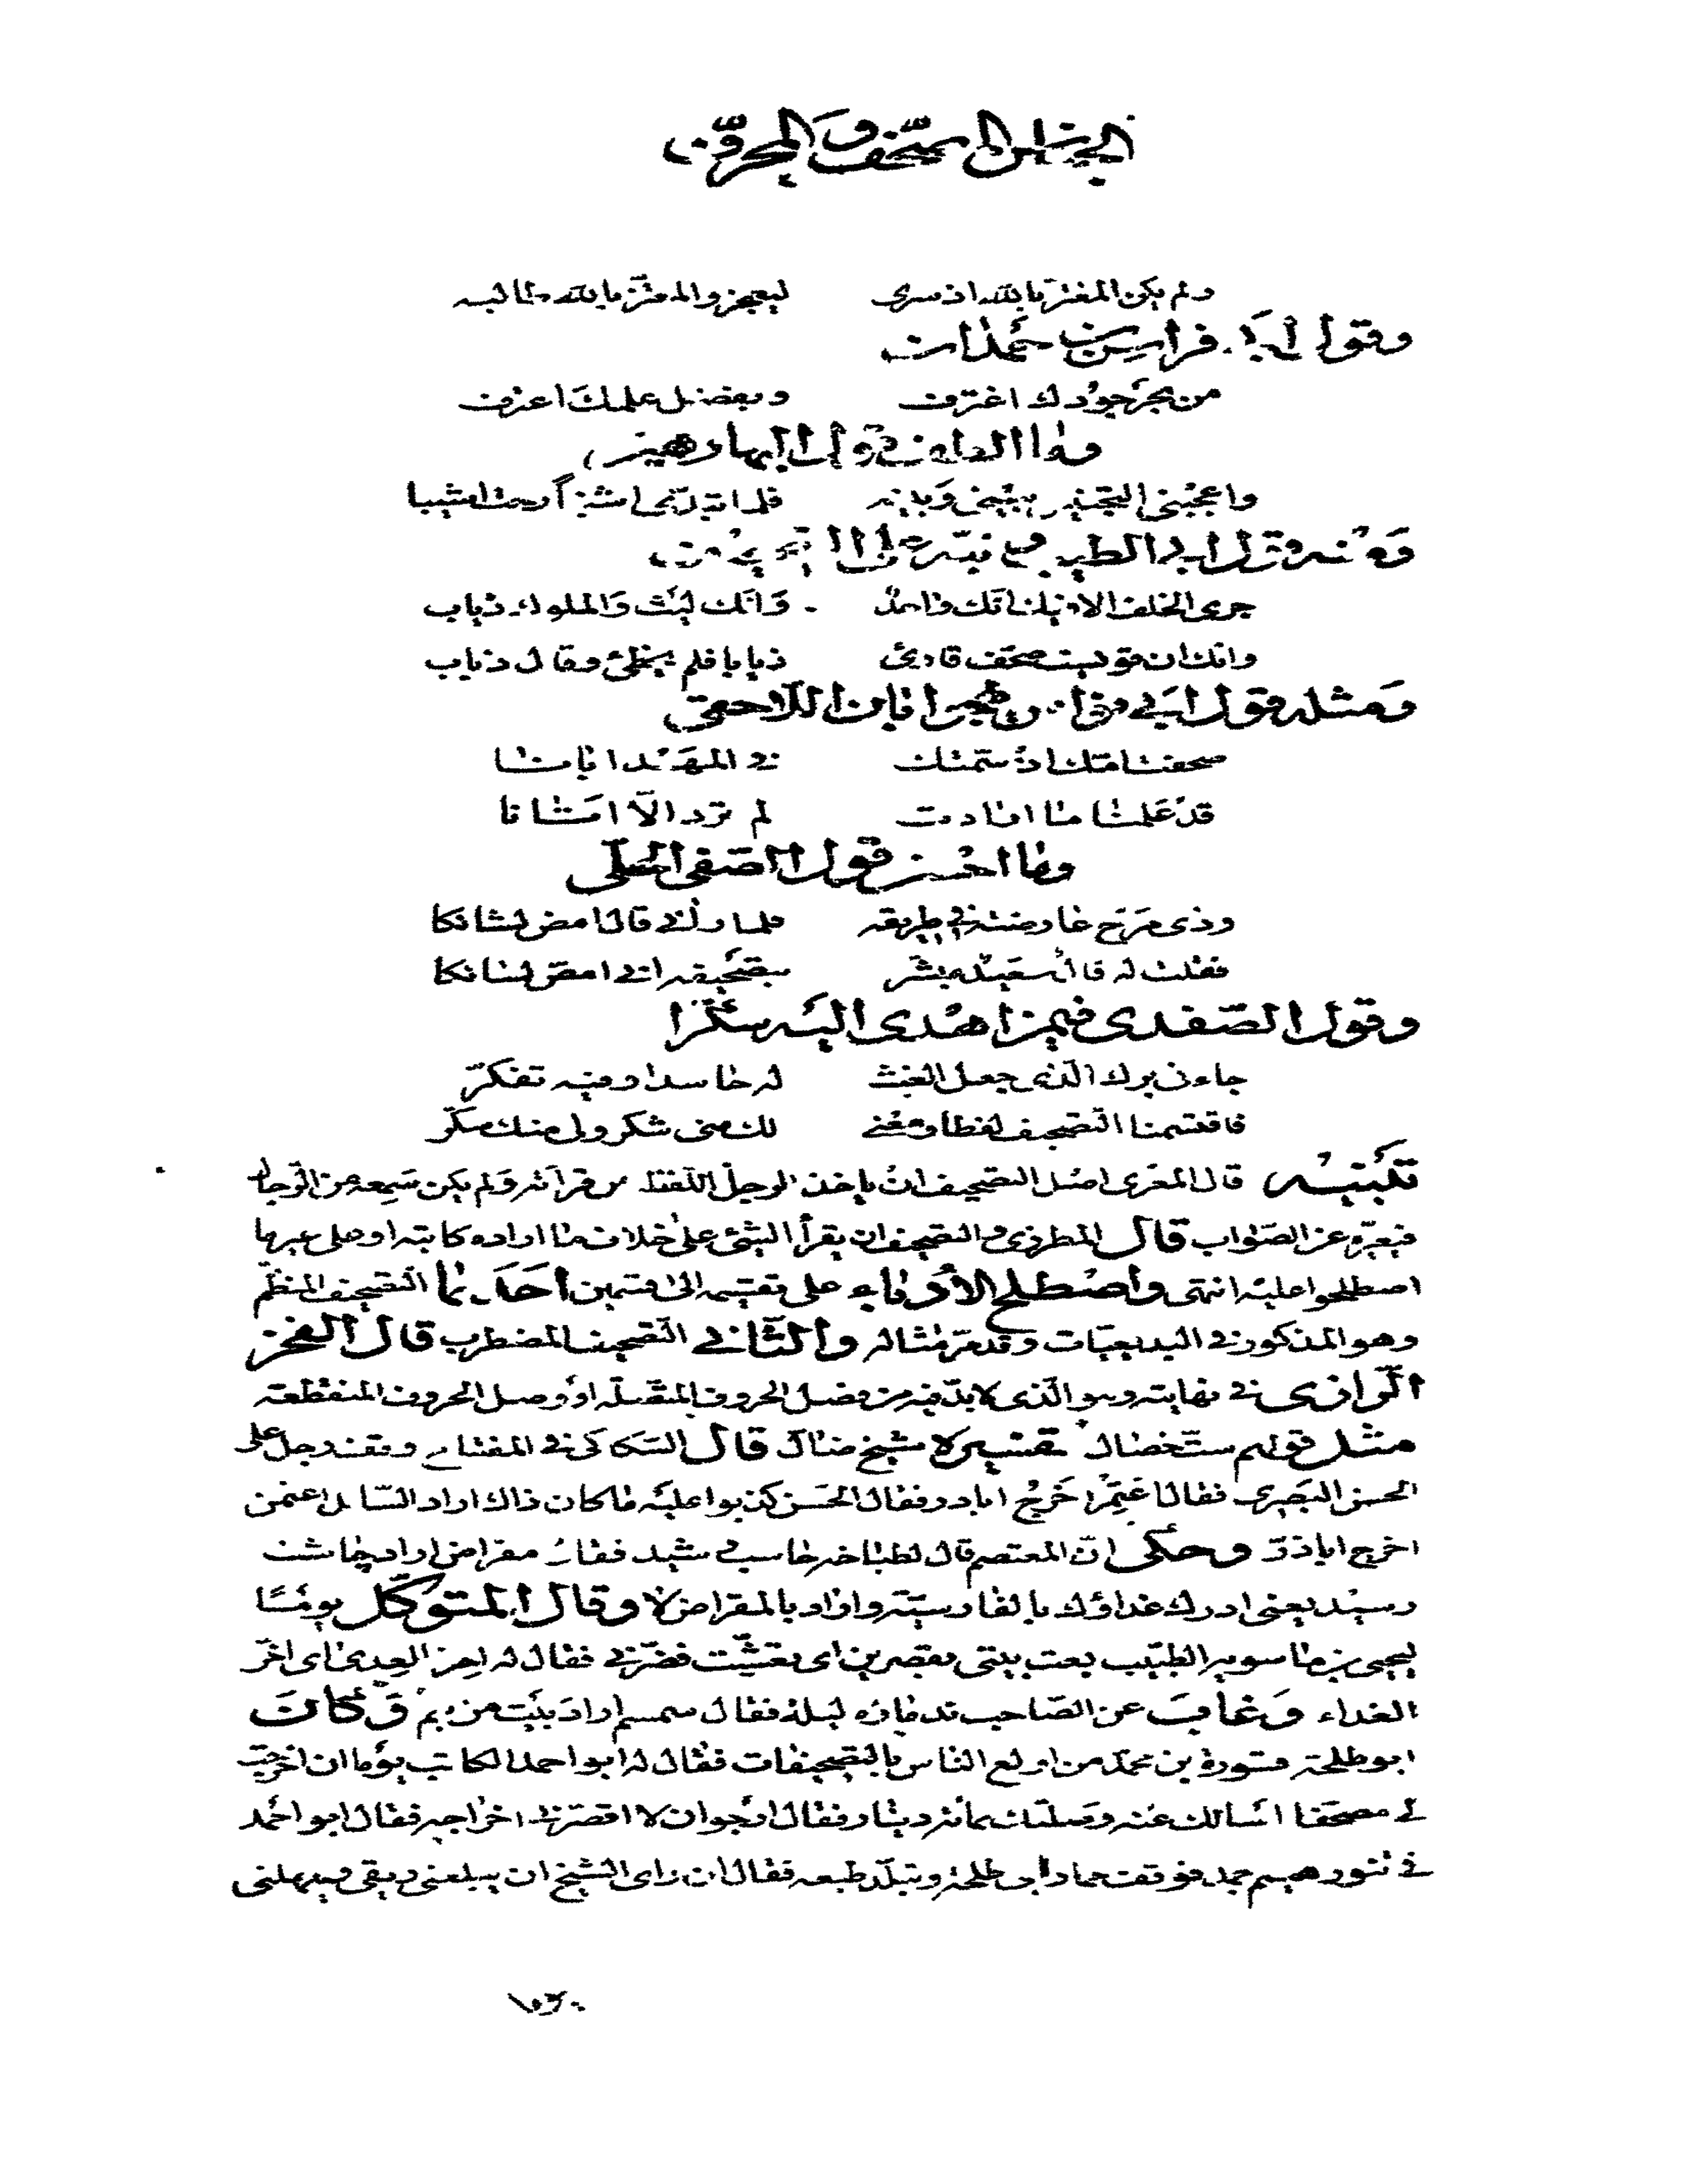 الجناس المصحّف والمحرّف
ولم يكن المغتر بالله اذ سرى ليعجز والمعتز بالله طالبه
وقول ابي فراس بن حمدان
من بحر جودك اغترف وبفضل علمك اعترف
وما الطف قول البهاء زهير
واعجبنى التجنيس بينى وبينه فلما تبدّى اشنبا رحت اشيبا
ومنه قول ابى الطيب
جرى الخلف الا فيك انك واحد وانك ليث والملوك ذئاب
وانك ان قويست صحّف قارئ ذئابا فلم يخطئ وقال ذباب
ومثله قول ابى نواس يهجو ابان اللاحقى
صحفت امك اذ سمتك فى المهد ابانا
قد علمنا ما ارادت لم ترد الّا اتانا
وما احسن قول الصفى الحلّى
وذى مرح عارضته فى طريقه فلما رآنى قال امض لشانكا
فقلت له فال سعيد مبشّر بتصحيفه انى امصّ لسانكا
وقول الصّفدى فيمن اهدى اليه سكّرا
جاءنى برك الّذى جعل الغيث له حاسدا وفيه تفكرّ
فاقتسمنا التّصحيف لفظا ومعنى لك منى شكر ولى منك سكّر
تنبيه قال المعرّى اصل التصحيف ان ياخذ الرجل اللّفظ من قرآته ولم يكن سمعه من الرّجال
فيغيّره عن الصّواب قال المطرزى والتصحيف ان يقرأ الشئ على خلاف ما اراده كاتبه او على غير ما
اصطلحوا عليه انتهى واصطلح الأدباء على تقسيمه الى قسمين احدهما التّصحيف المنظّم
وهو المذكور فى البديعيّات وقد مرّ مثاله والثّانى التّصحيف المضطرب قال الفخر
الرّازى فى نهايته وهو الّذى لا بدّ فيه من فصل الحروف المتّصلة او وصل الحروف المنفطعة
مثل قولهم ستّخصال تفسيره شيخ ضالّ قال السّكاكى فى المفتاح ووقف رجل على
الحسن البصرى فقال اعتمر اخرج ابادر فقال الحسن كذبوا عليه ما كان ذاك اراد السّائل اعثمن
اخرج اباذرّ وحكى انّ المعتصم قال لطبّاخه حاسب رشيد فقال مقراض اراد چاشت
رسيد يعنى ادرك غداؤك بالفارسيّة واراد بالمقراض لا وقال المتوكّل يومًا
ليحيى بن ماسويه الطّبيب بعت بيتى بقصرين اى تعشّيت فضرّنى فقال له اخر الغداى اى اخّر
الغداء وغاب عن الصّاحب ندمانه ليلة فقال سمسم اراد بيت من بم وكان
ابو طلحة قسورة بن محمّد من اولع الناس بالتصحيفات فقال له ابو احمد الكاتب يوما ان اخرجت
لى مصحّفا اسالك عنه وصلتك بمائة دينار فقال ارجو ان لا اقصّر فى اخراجه فقال ابو احمد
فى تنور هيسم جمد فوقف حمار ابى طلحة وتبلّد طبعه فقال ان رأى الشيخ ان يبلعنى ريقى ويمهلنى